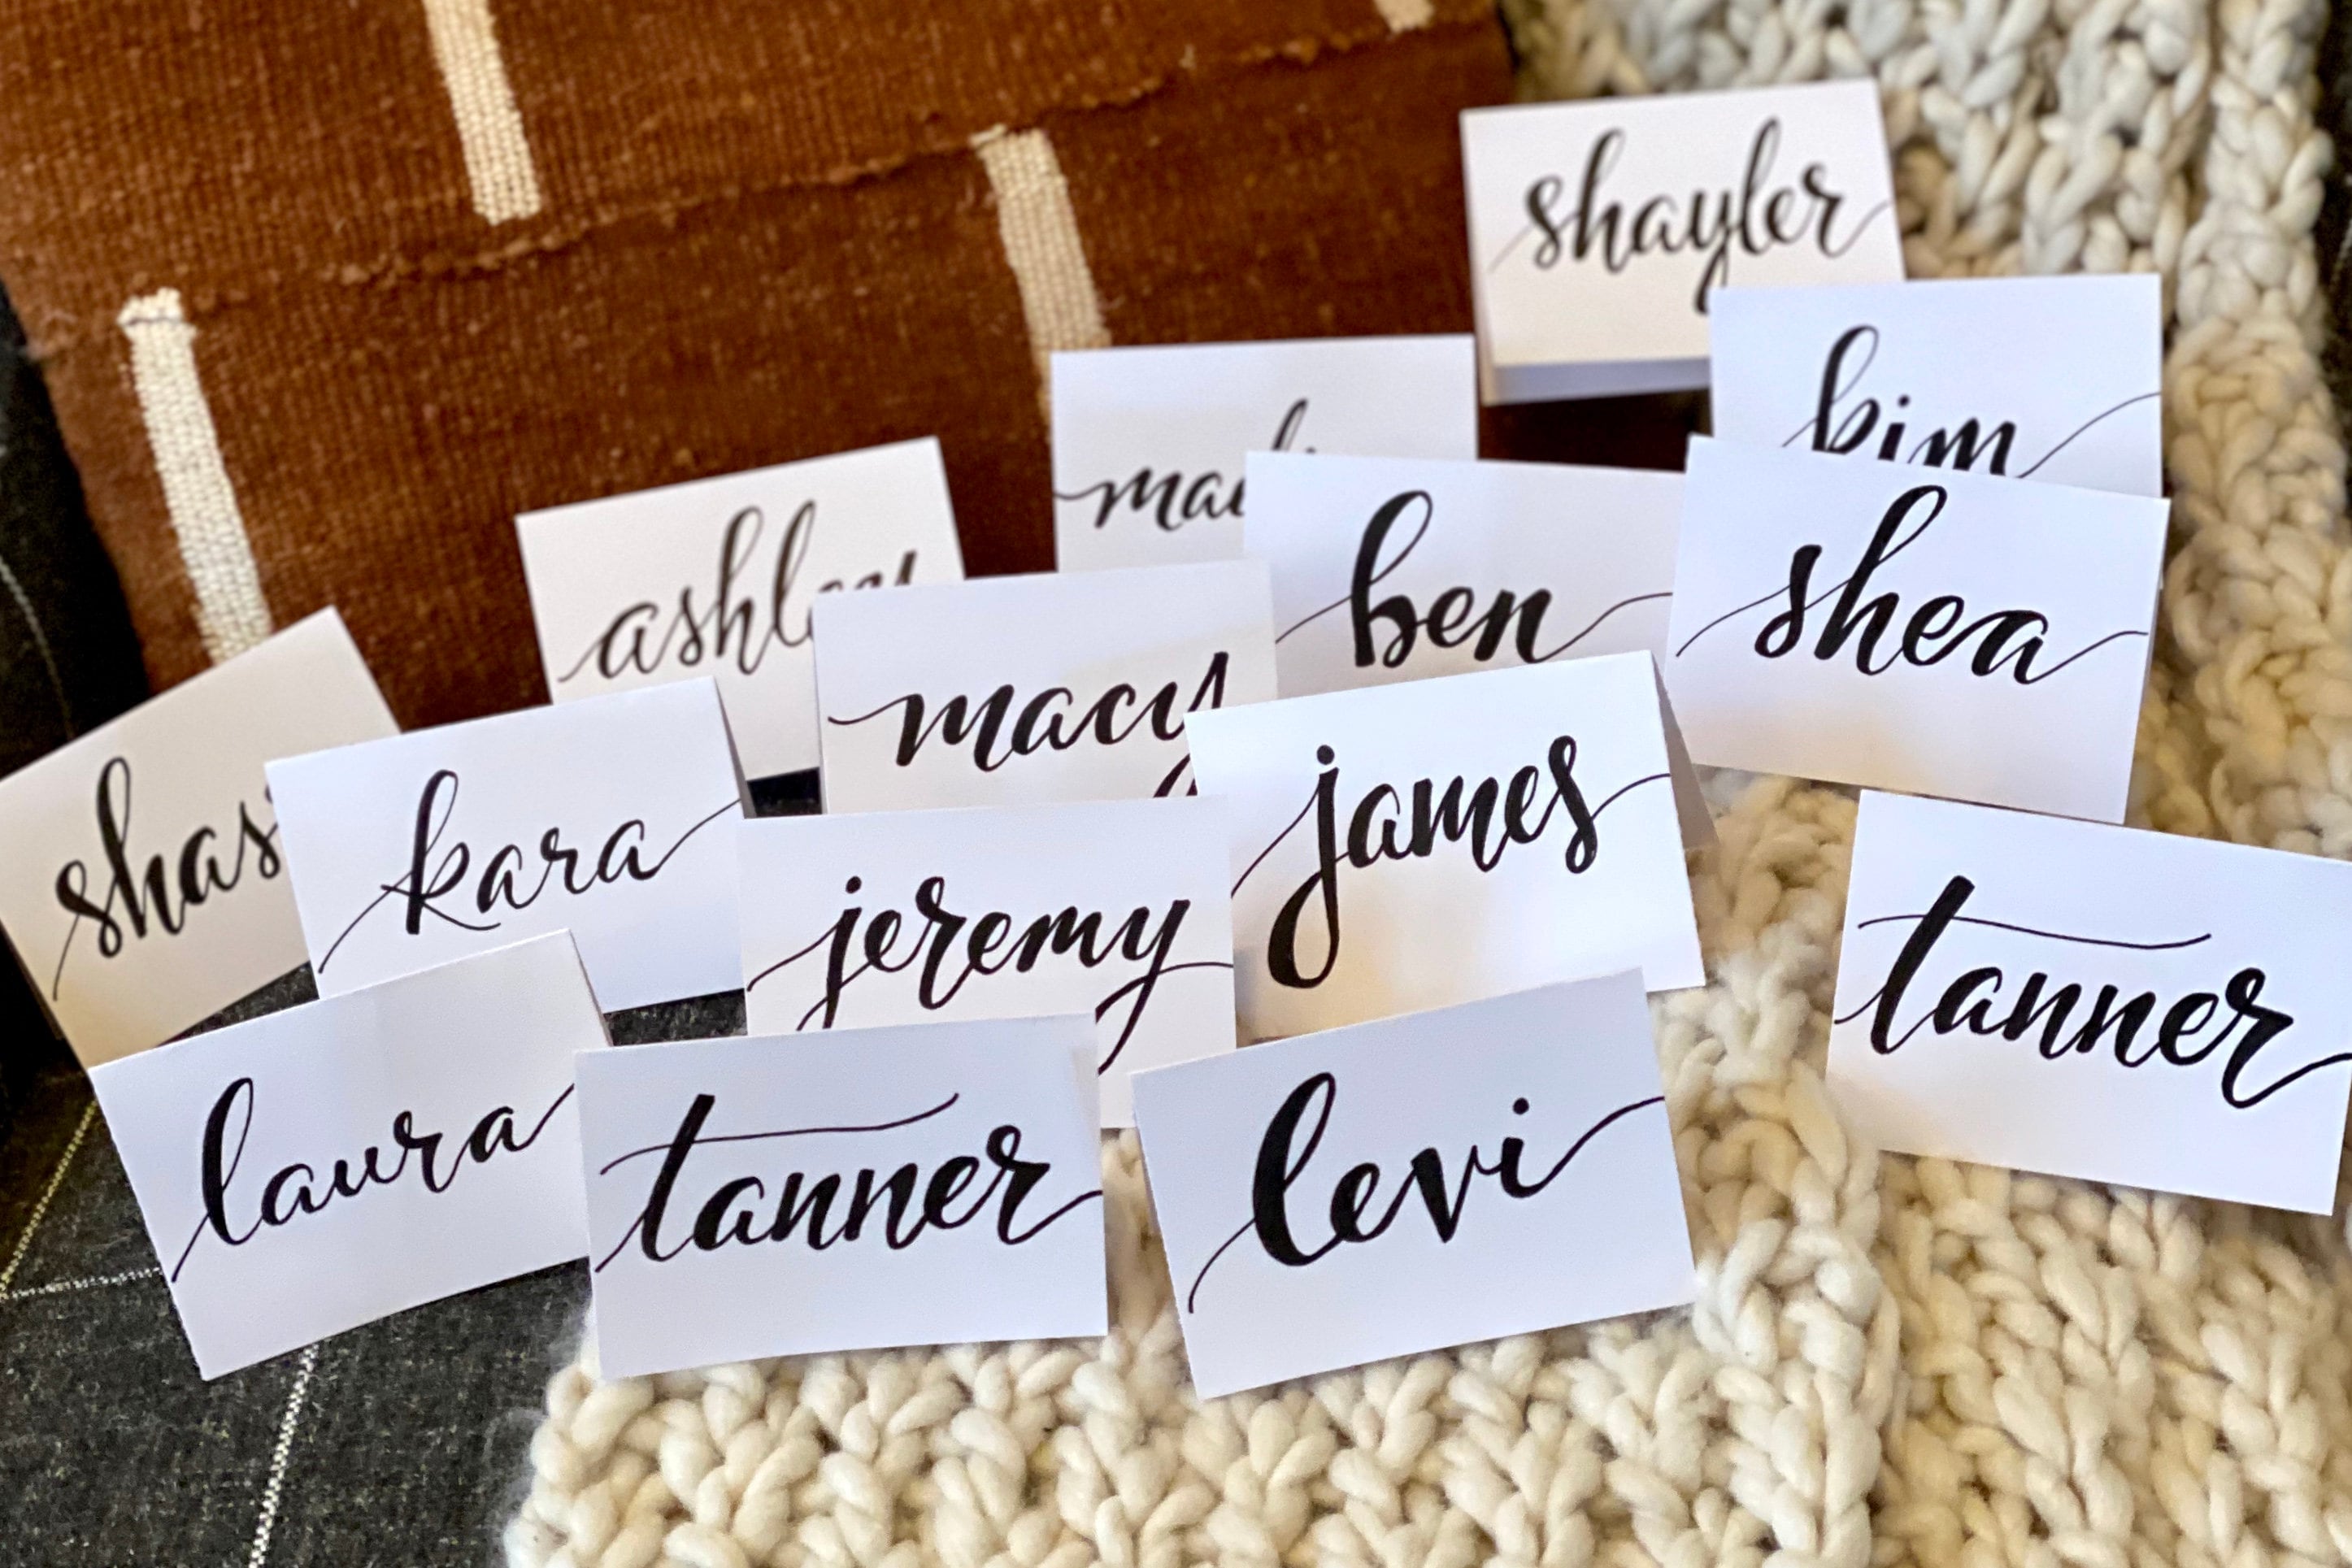 shayler
kim
ben
shea
ashley
macy
james
kara
jeremy
tanner
laura
tanner
levi